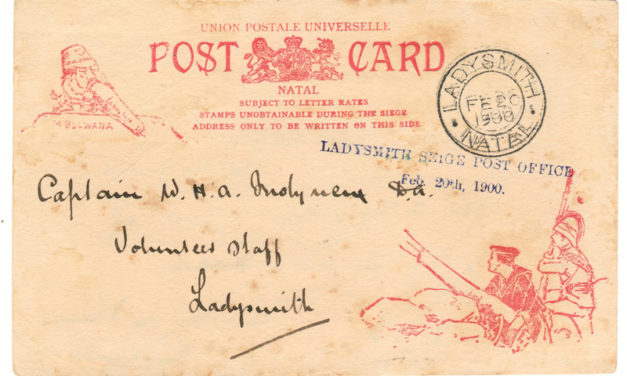 UNION POSTALE UNIVERSELLE
POST CARD
NATAL
SUBJECT TO LETTER RATES
STAMPS UNOBTAINABLE DURING THE SIEGE
ADDRESS ONLY TO BE WRITTEN ON THIS SIDE
BULWANA
LADYSMITH
FE 20
1900
NATAL
LADYSMITH SEIGE POST OFFICE
Feb. 20th, 1900.
Captain W. H. A.
Volunteer Staff
Ladysmith